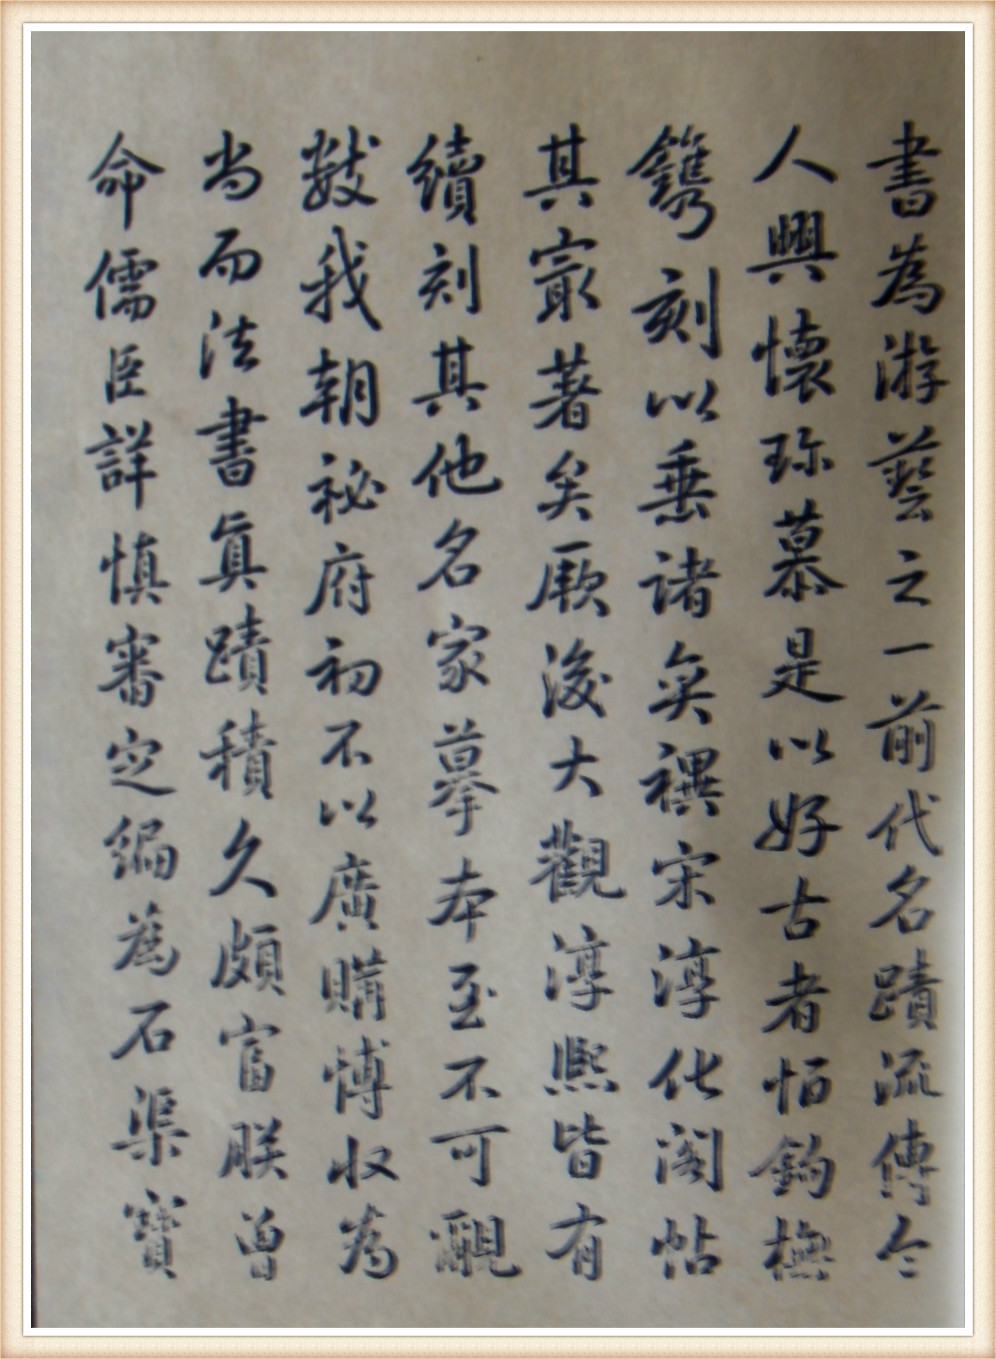 書為游藝之一前代名蹟流傳令
人興懷珍慕是以好古者恒鉤橅
鐫刻以垂諸奕禩宋淳化閣帖
其冣著矣厥後大觀淳熙皆有
續刻其他名家摹本至不可覼
數我朝祕府初不以廣購博收為
尚而法書真蹟積久頗富朕曾
命儒臣詳慎審定編為石渠寶